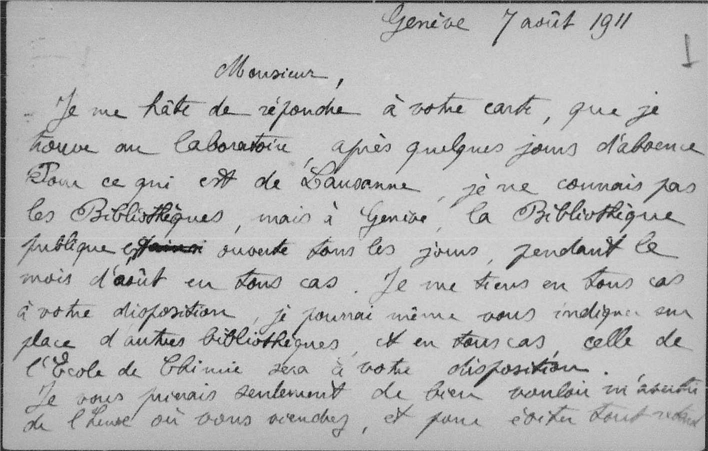 Genève 7 août 1911
Monsieur,
Je me hâte de répondre à votre carte, que je
trouve au laboratoire, après quelques jours d'absence
Pour ce qui est de Lausanne, je ne connais pas
les Bibliothèques, mais à Genève, la Bibliothèque
publique ouverte tous les jours, pendant le
mois d'août en tous cas. Je me tiens en tous cas
à votre disposition, je pourrai même vous indiquer sur
place d'autres bibliothèques, et en tous cas celle de
l'Ecole de Chimie sera à votre disposition.
Je vous prierais seulement de bien vouloir m'avertir
de l'heure où vous viendrez, et pour éviter tout retard